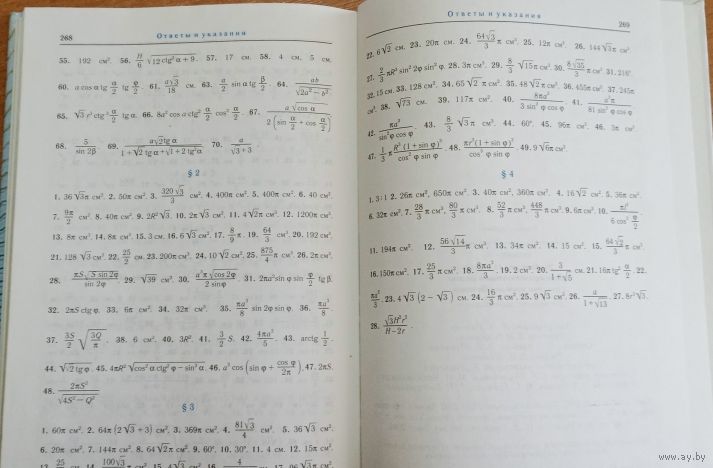 268
Ответы и указания
55. 192 см². 56. H/6 √(12 ctg² α + 9). 57. 17 см. 58. 4 см, 5 см.
60. a cos α tg α/2 tg φ/2. 61. a√3/18 см. 63. a/2 sin α tg β/2. 64. ab/√(2a² − b²).
65. √3 r² ctg² α/2 tg α. 66. 8a² cos α ctg² α/2 cos² α/2. 67. a √cos α / 2(sin α/2 + cos α/2)
68. 5/sin 2β. 69. a√2 tg α / 1 + √2 tg α + √1 + 2 tg² α. 70. a/√3 + 3
§ 2
1. 36 √3π см². 2. 50π см². 3. 320 √3/3 см². 4. 400π см². 5. 400π см². 6. 40 см².
7. 9π/2 см². 8. 40π см². 9. 2R² √3. 10. 2π √3 см². 11. 4 √2π см². 12. 1200π см².
13. 8π см². 14. 8π см². 15. 3 см. 16. 6 √3 см². 17. 8/9 π. 19. 64/3 см². 20. 192 см².
21. 128 √3 см². 22. 25/2 см. 23. 200π см³. 24. 10 √2 см². 25. 875/4 π см³. 26. 2π см².
28. πS√S sin 2φ / sin 2φ. 29. √39 см. 30. a³π √cos 2φ / 2 sin φ. 31. 2πa² sin φ sin φ/2 tg β.
32. 2πS ctg φ. 33. 6π см². 34. 32π см³. 35. πa³/8 sin 2φ sin φ. 36. πa³/8
37. 3S/2 √(3Q/π). 38. 6 см². 40. 3R². 41. 3/2 S. 42. 4πa²/5. 43. arctg 1/2.
44. √(√2 tg φ). 45. 4πR² √(cos² α ctg² φ − sin² α). 46. a³ cos (sin φ + cos φ/2π). 47. 2πS.
48. 2πS²/√(4S² − Q²)
§ 3
1. 60π см². 2. 64π (2 √3 + 3) см². 3. 369π см². 4. 81√3/4 см². 5. 36 √3 см².
6. 20π см². 7. 144π см². 8. 64 √2π см². 9. 60°. 10. 30°. 11. 4 см. 12. 15π см².
25 100√3 4
Ответы и указания
269
22. 6√2 см. 23. 20π см. 24. 64√3/3 π см³. 25. 12π см³. 26. 144 √3π см³
27. 2/3 πR³ sin² 2φ sin² φ. 28. 3π см³. 29. 8/3 √15π см³. 30. 8√35/3 π см³. 31. 216°.
32. 15 см. 33. 128 см³. 34. 65 √2 π см³. 35. 48 √2 π см³. 36. 455π см³. 37. 245π
см³. 38. √73 см. 39. 117π см³. 40. 8πa³/3 sin² φ cos φ. 41. a³π/81 sin² φ cos φ
42. πa³/sin² φ cos φ. 43. 8/3 √3 π см³. 44. 60°. 45. 96π см³. 46. 3π см³
47. 1/3 π R³(1 + sin φ)³/cos² φ sin φ. 48. πr²(1 + sin φ)²/cos² φ sin φ. 49. 9 √6π см³.
§ 4
1. 3:1. 2. 26π см², 650π см². 3. 40π см², 360π см². 4. 16 √2 см². 5. 36π см².
6. 32π см². 7. 28/3 π см³, 80/3 π см³. 8. 52/3 π см³, 448/3 π см³. 9. 6π см². 10. πl³/6 cos² φ/2
11. 194π см². 12. 56 √14/3 π см³. 13. 34π см². 14. 15 см². 15. 64 √2/3 π см³.
16. 150π см². 17. 25/3 π см². 18. 8πa³/3. 19. 2 см². 20. 3/1+√5. 21. 16π tg² α/2. 22.
πa³/3. 23. 4√3 (2 − √3) см. 24. 16/3 π см³. 25. 9 √3 см². 26. a/1+√13. 27. 8r³ √3.
28. √3H²r²/H−2r.
www.ay.by